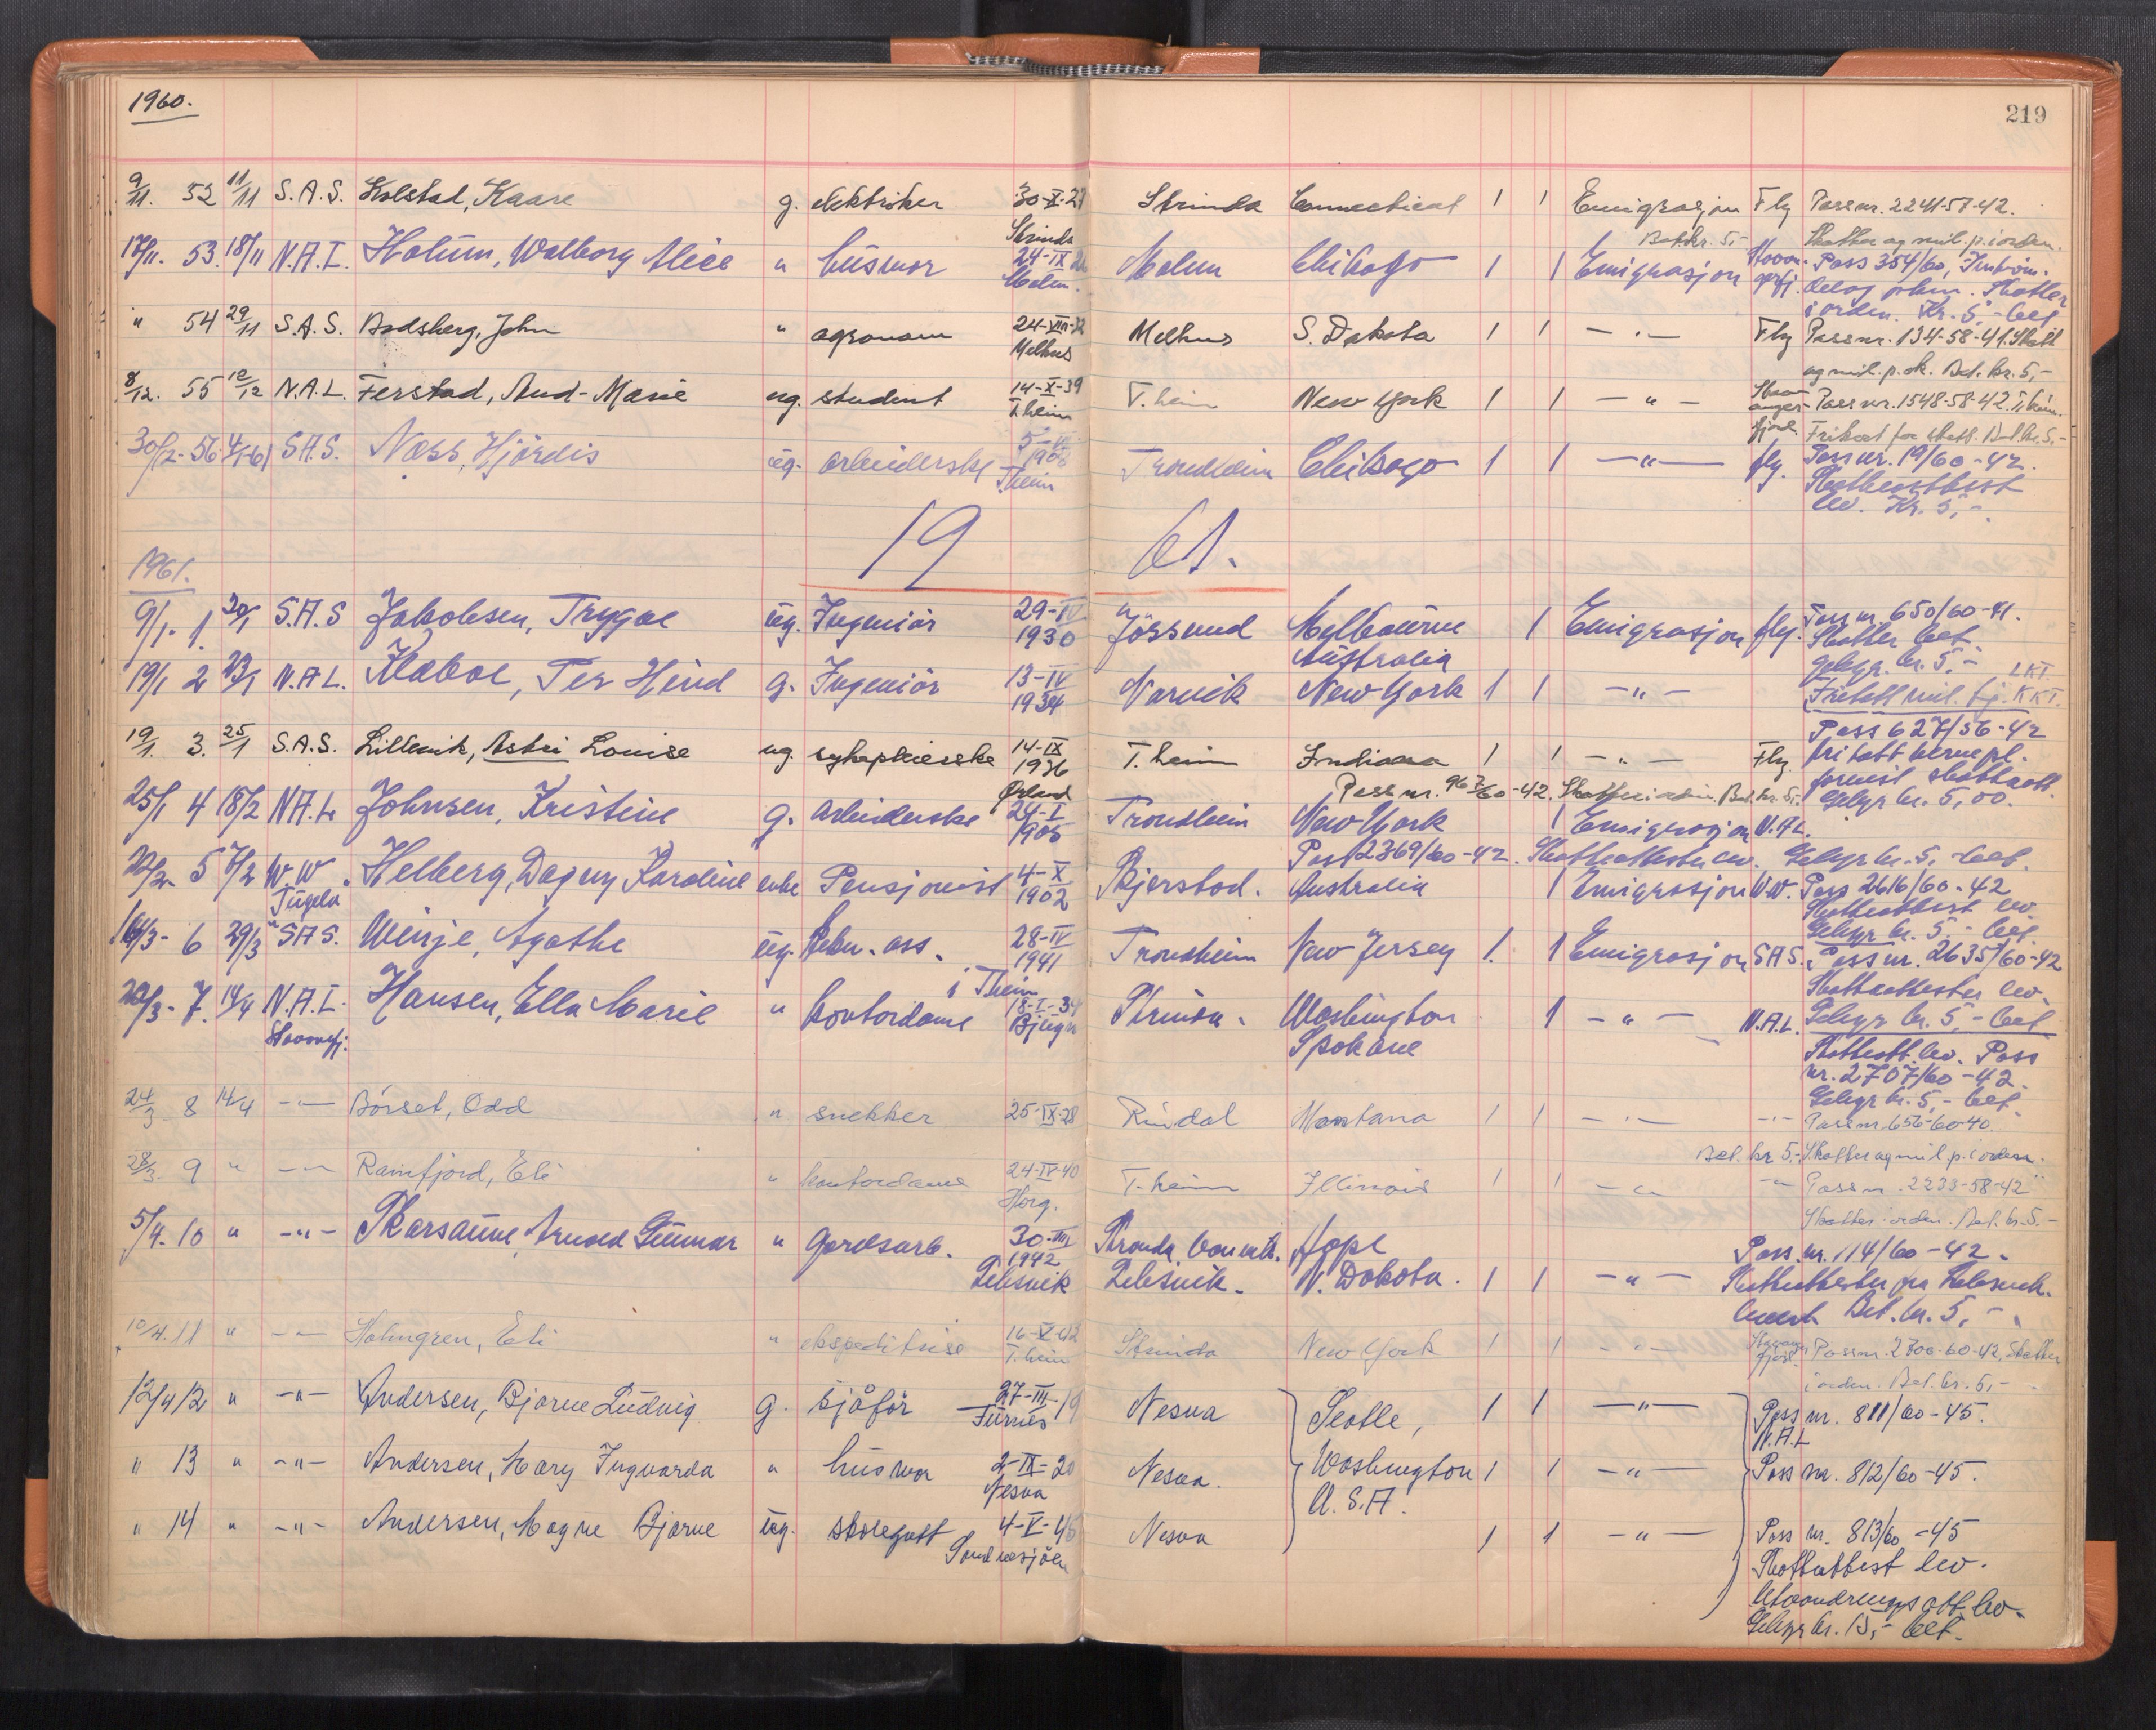 1960.
219
9/11. 52 11/11 S.A.S. Kolstad, Kaare g. elektriker 30-X-27 Strinda Strinda Connecticut 1 1 Emigrasjon Fly Passnr. 2241-57-42.
Bet. kr. 5,- Skatter og mil.p. i orden.
17/11. 53. 18/11 N.A.L. Holum, Walborg Alice " husmor 24-IX Malm. Malm Chikago 1 1 Emigrasjon Pass 354/60,
Skatter
i orden. Kr. 5,- bet
" 54 29/11 S.A.S. Bodsberg, John " agronom 24-VIII-32 Melhus Melhus S. Dakota 1 1 - " - Fly Passnr. 134-58-41. Skatt
og mil.p. ok. Bet. kr. 5,-
8/12. 55 10/12 N.A.L. Ferstad, Aud-Marie ug. student 14-X-39 T.heim T.heim New York 1 1 - " - Stavangerfjord Passnr. 1548-58-42. T.heim.
Frikort for skatt. Bet. kr. 5,-
30/12- 56 4/1-61 S.A.S. Næss, Hjördis ug. arbeiderske T.heim Trondheim Chikago 1 1 - " - fly. Passnr. 19/60-42.
Skatteattest
lev. Kr. 5,-
19 61.
1961.
9/1. 1 20/1 S.A.S Jakobsen, Trygve ug. Ingeniör 29-IV 1930 Jössund Melbourne Australia 1 Emigrasjon fly. Passnr. 650/60-41.
Skatter bet
Gebyr. kr. 5,-
19/1 2 23/1 N.A.L. Klæboe, Per Hind g. Ingeniör 13-IV 1934 Narvik New York 1 1 - " -
Pass 627/56-42
19/1. 3. 25/1 S.A.S. Lillevik, Astri Louise ug. sykepleierske 14-IX 1936 Ørland T.heim Indiana 1 1 - " - Fly
Pass nr. 967/60-42. Bet. kr. 5,-
Gebyr kr. 5,00.
25/1 4 18/2 N.A.L. Johnsen, Kristine g. arbeiderske 24-I 1905 Trondheim New York 1 Emigrasjon N.A.L.
Pass 2369/60-42. Skatteattester lev. Gebyr kr. 5,- bet.
5 7/2 W.W. "Tugela" Helberg, Dagny Karoline enke Pensjonist 4-X 1902 Bjerstad. Australia 1 Emigrasjon W.W. Pass 2616/60-42
Skatteattest lev
Gebyr kr. 5.- bet.
16/3- 6 29/3 SAS. Winje, Agathe ug. ass. 28-IV 1941 i T.heim Trondheim New Jersey 1. 1 Emigrasjon SAS. Passnr. 2635/60-42
Skatteattester lev.
Gebyr kr. 5,- bet
20/3- 7. 14/4 N.A.L. Stavangfj. Hansen, Ella Marie " kontordame 18-I-34 Bjugn Strinda. Washington Spokane 1 - " - N.A.L.
Skatteatt. lev. Pass
nr. 2707/60-42.
Gebyr kr. 5,- bet.
24/3 8 14/4 - " - Börset, Odd " snekker 25-IX-28 Rindal Montana 1 1 - " - - " - Passnr. 656-60-40.
Bet. kr. 5,- Skatter og mil.p. i orden.
28/3. 9 " - " - Ramfjord, Eli " kontordame 24-IV-40 Horg. T.heim Illinois 1 1 - " - - " - Passnr. 2233-58-42
Skatter i orden. Bet. kr. 5.-
5/4. 10 " - " - Skarsaune, Arnold Gunnar " gardsarb. 30-III 1942 Leksvik Leksvik. Hope N. Dakota. 1 1 - " - Pass. nr. 114/60-42.
Skatteattester fra Leksvik.
levert Bet. kr. 5,-.
10/4. 11 " - " - Holmgren, Eli " ekspeditrise 16-V-42 T.heim Strinda New York 1 1 - " - Stavangerfjord Passnr. 2706-60-42, Skatter
i orden. Bet. kr. 5,-
12/4 12 " - " - Andersen, Bjarne Ludvig g. sjåför 27-III-19 Furnes Nesna Seatle, 1 1 - " - Pass nr. 811/60-45.
N.A.L
" 13 " - " - Andersen, Mary Ingvarda " husmor 2-IX-20 Nesna Nesna. Washington 1 1 - " - Pass nr. 812/60-45.
U.S.A.
" 14 " - " - Andersen, Magne Bjarne ug. skolegutt 4-V-45 Sandnessjöen Nesna 1 1 - " - Pass nr. 813/60-45
Skatteattest lev.
Utvandringsatt. lev.
Gebyr kr. 15,- bet.